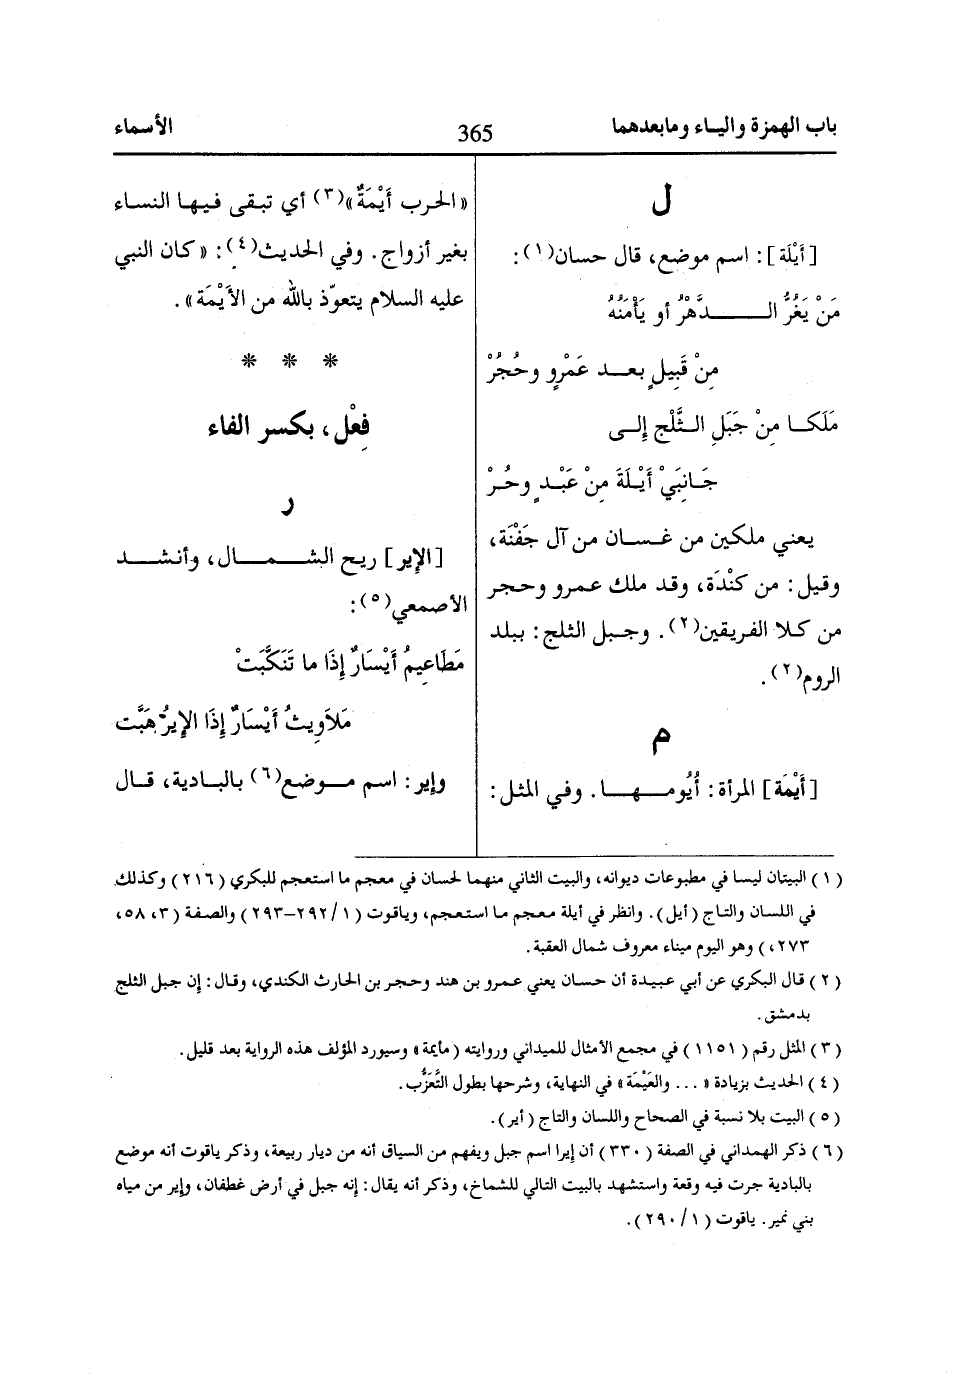 باب الهمزة والياء ومابعدهما
365
الأسماء
ل
[أَيْلَة]: اسم موضع، قال حسان(١):
مَنْ يَغُرُّ الــــــدَّهْرُ أو يَأْمَنُهُ
مِنْ قَبِيلٍ بعــد عَمْرٍو وحُجُرْ
مَلَكــا مِنْ جَبَلِ الــثَّلْجِ إلى
جَــانِبَيْ أَيْــلَةَ مِنْ عَبْــدٍ وحُــرْ
يعني ملكين من غــسان من آل جَفْنَة،
وقيل: من كنْدَة، وقد ملك عمرو وحجر
من كلا الفريقين(٢). وجبل الثلج: ببلد
الروم(٢).
م
[أَيْمَة] المرأة: أُيُومــهــا. وفي المثل:
«الحرب أَيْمَةٌ»(٣) أي تبقى فيها النساء
بغير أزواج. وفي الحديث(٤): «كان النبي
عليه السلام يتعوّذ بالله من الأَيْمَة».
* * *
فِعْل، بكسر الفاء
ر
[الإير] ريح الشــمــال، وأنشــد
الأصمعي(٥):
مَطَاعِيمُ أَيْسَارٌ إذَا ما تَنَكَّبَتْ
مَلاَوِيثُ أَيْسَارٌ إذَا الإيرُ هَبَّت
وإير: اسم مــوضع(٦) بالبادية، قــال
(١) البيتان ليسا في مطبوعات ديوانه، والبيت الثاني منهما لحسان في معجم ما استعجم للبكري (٢١٦) وكذلك
في اللسان والتاج (أيل). وانظر في أيلة معجم ما استعجم، وياقوت (٢٩٢/١–٢٩٣) والصفة (٣، ٥٨،
٢٧٣،) وهو اليوم ميناء معروف شمال العقبة.
(٢) قال البكري عن أبي عبيدة أن حسان يعني عمرو بن هند وحجر بن الحارث الكندي، وقال: إن جبل الثلج
بدمشق.
(٣) المثل رقم (١١٥١) في مجمع الأمثال للميداني وروايته (مأيمة» وسيورد المؤلف هذه الرواية بعد قليل.
(٤) الحديث بزيادة «... والعَيْمَة» في النهاية، وشرحها بطول التَّعَزُّب.
(٥) البيت بلا نسبة في الصحاح واللسان والتاج (أير).
(٦) ذكر الهمداني في الصفة (٣٣٠) أن إيرا اسم جبل ويفهم من السياق أنه من ديار ربيعة، وذكر ياقوت أنه موضع
بالبادية جرت فيه وقعة واستشهد بالبيت التالي للشماخ، وذكر أنه يقال: إنه جبل في أرض غطفان، وإير من مياه
بني نمير. ياقوت (٢٩٠/١).